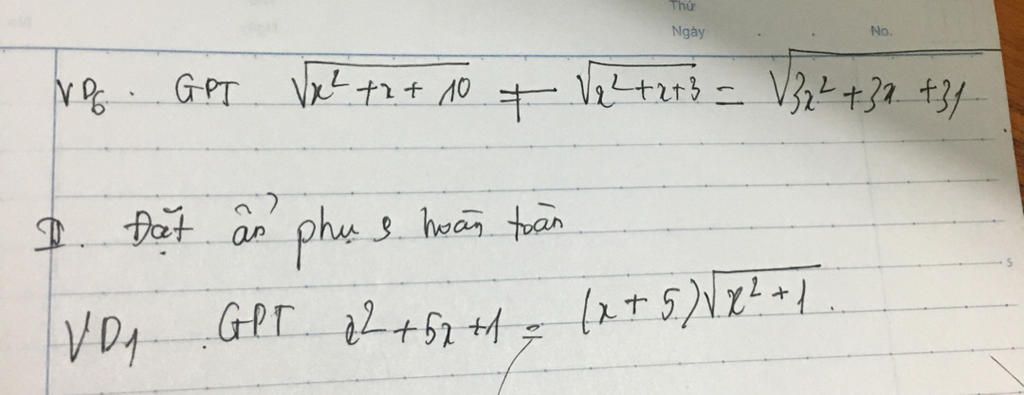 Thứ
Ngày No.
VD6. GPT √(x²+x+10) + √(x²+x+3) = √(3x²+3x+31)
II. Đặt ẩn phụ s hoàn toàn
VD1 . GPT x²+5x+1 = (x+5)√(x²+1).